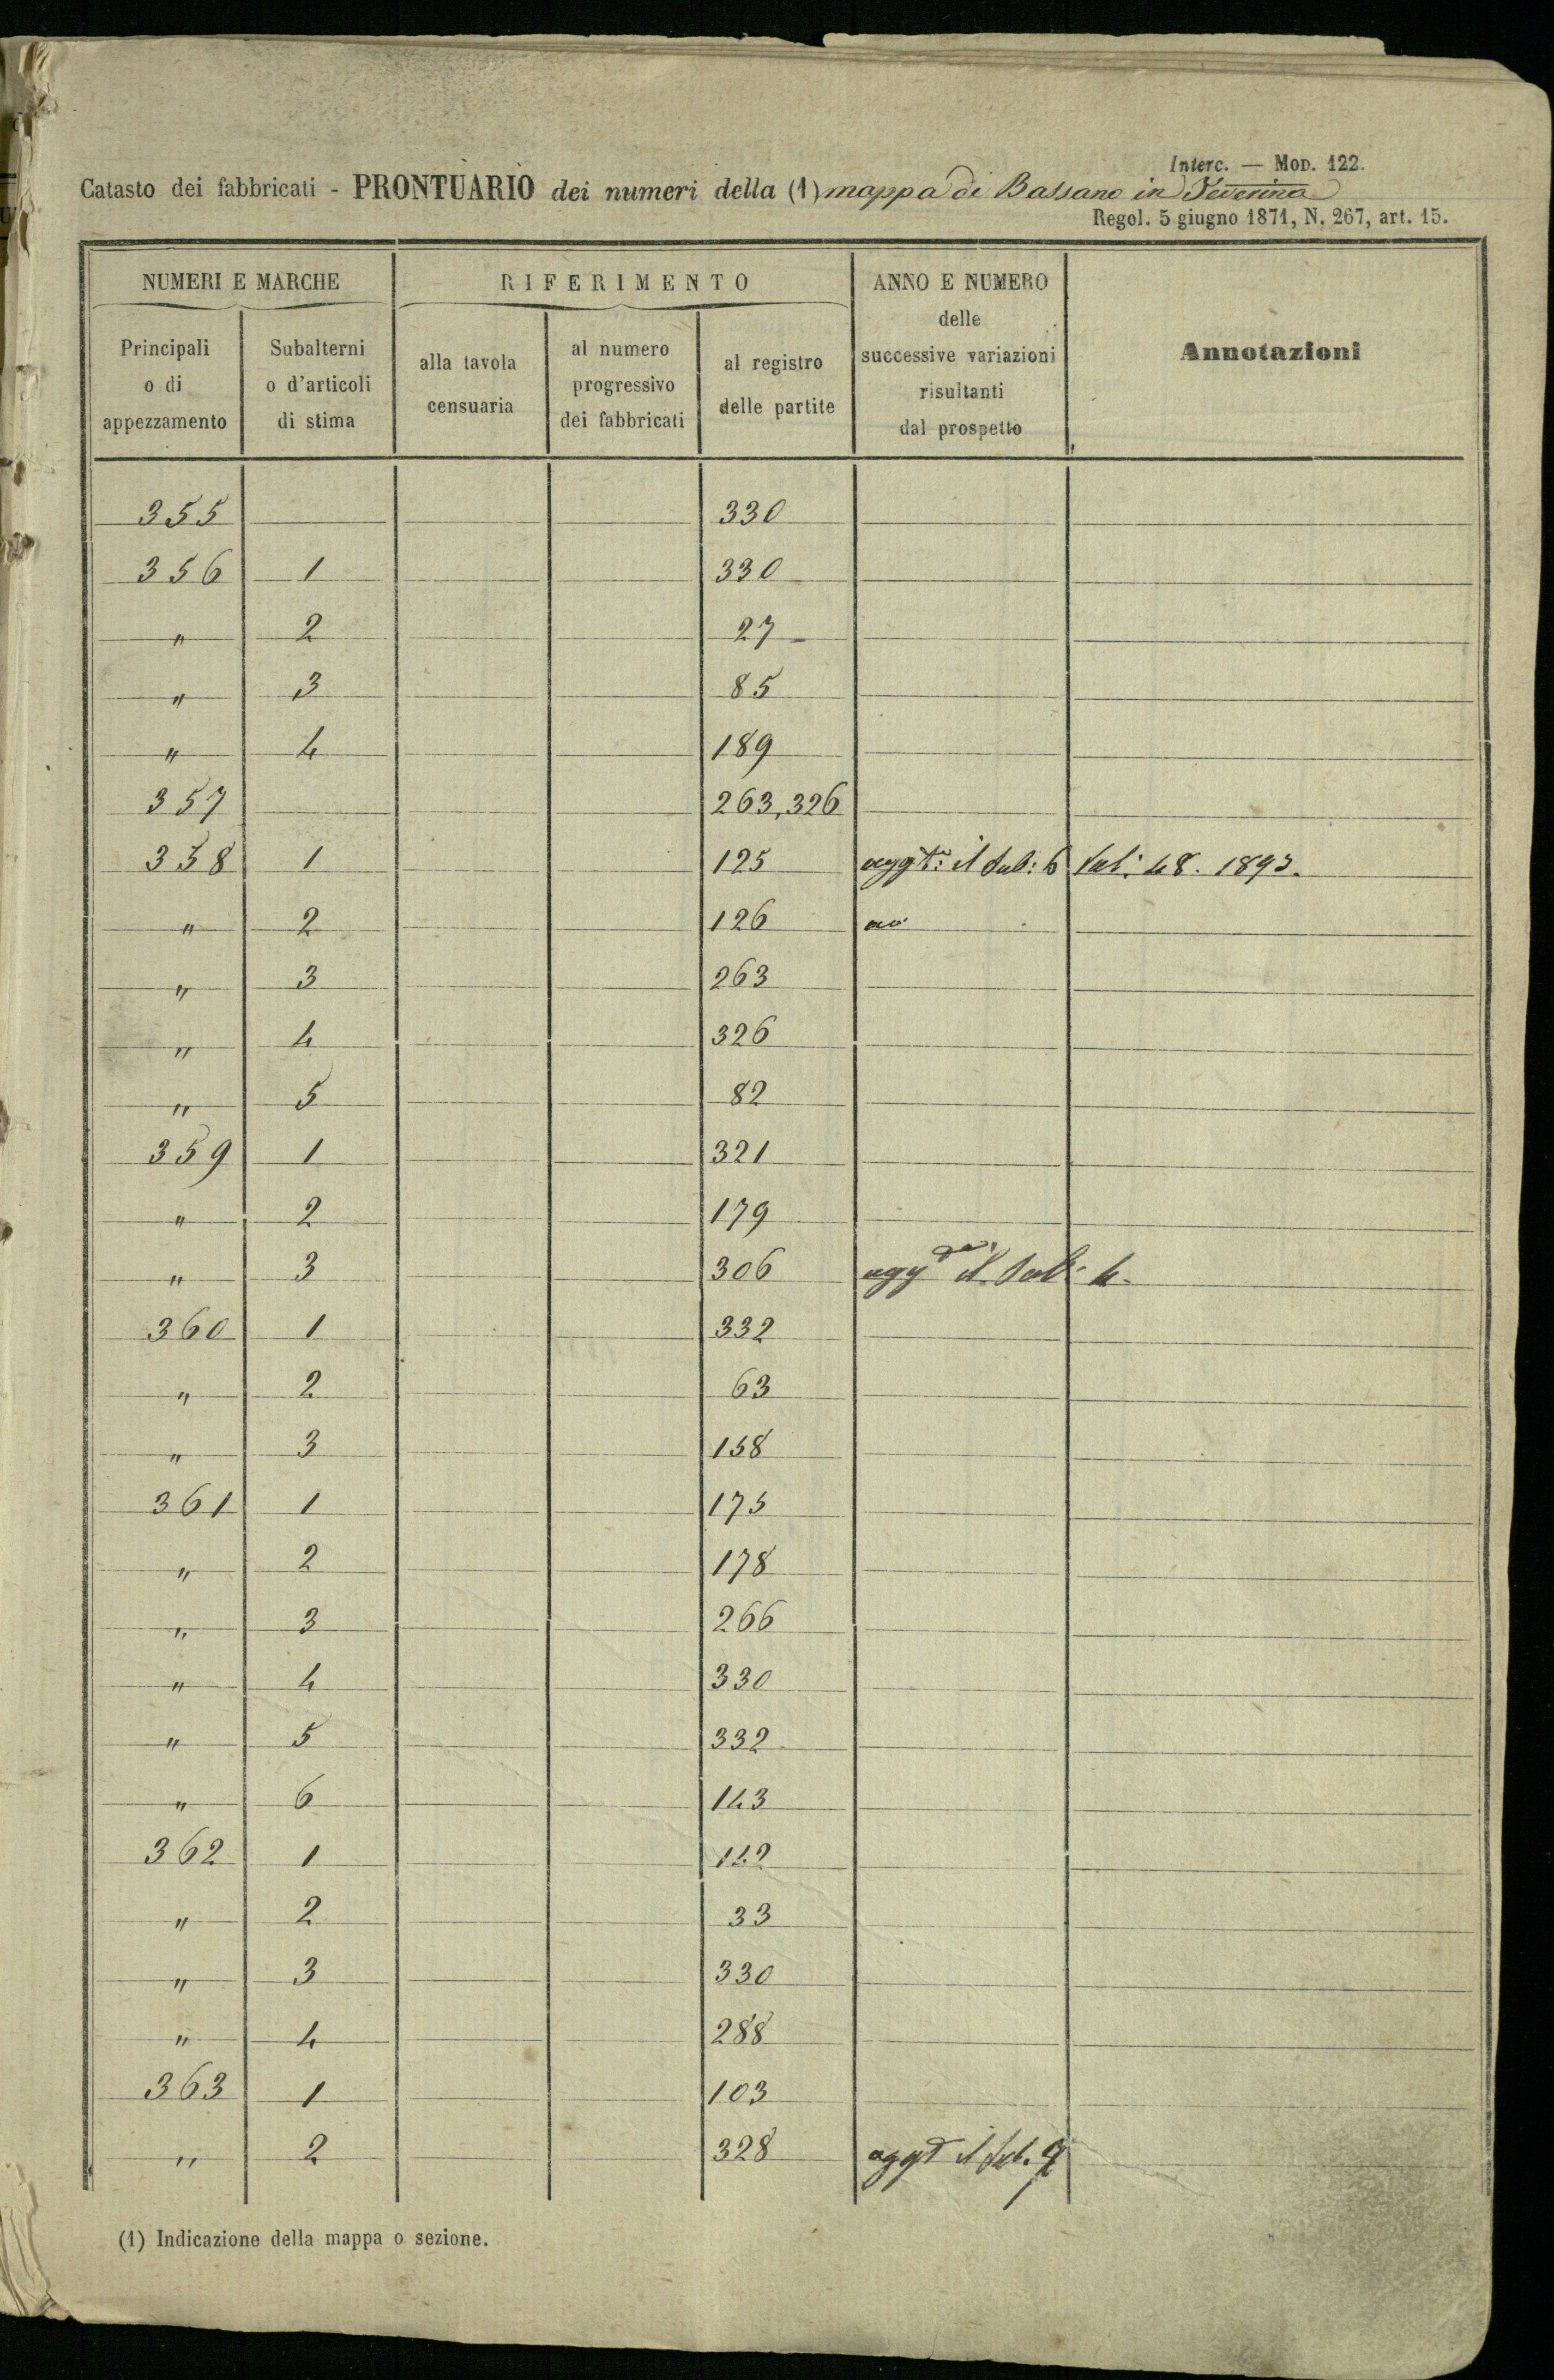 Interc. — Mod. 122.
Catasto dei fabbricati - PRONTUARIO dei numeri della (1) mappa di Bassano in Teverina
Regol. 5 giugno 1871, N. 267, art. 15.
NUMERI E MARCHE RIFERIMENTO ANNO E NUMERO delle successive variazioni risultanti dal prospetto Annotazioni
Principali o di appezzamento Subalterni o d'articoli di stima alla tavola censuaria al numero progressivo dei fabbricati al registro delle partite
355 330
356 1 330
" 2 27
" 3 85
" 4 189
357 263, 326
358 1 125 il Sub: 6 48. 1893.
" 2 126
" 3 263
" 4 326
" 5 82
359 1 321
" 2 179
" 3 306 il Sub: 4.
360 1 332
" 2 63
" 3 158
361 1 175
" 2 178
" 3 266
" 4 330
" 5 332
" 6 143
362 1 142
" 2 33
" 3 330
" 4 288
363 1 103
" 2 328 il Sub.
(1) Indicazione della mappa o sezione.